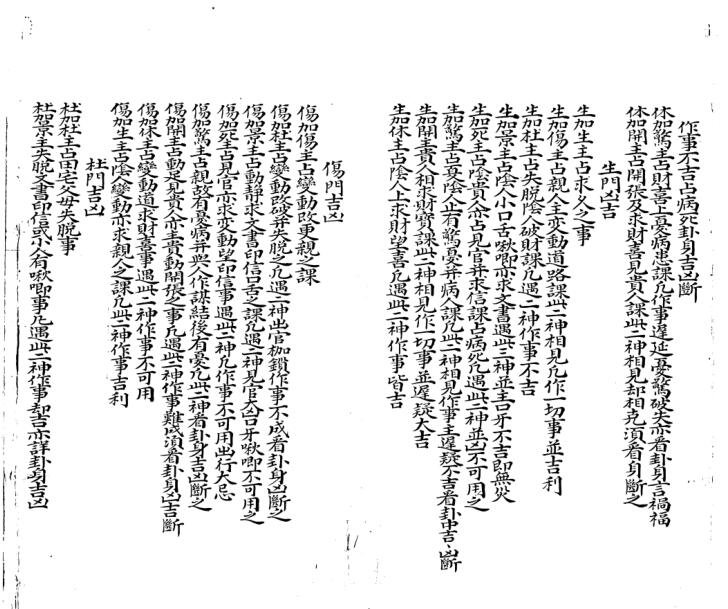 作事不吉占病死卦身吉凶斷
休加驚主占財喜上憂病患課凡作事遲延憂驚破失亦看卦身言禍福
休加開主占開張及求財喜見貴人課此二神相見却相克須看身斷之
生門凶吉
生加生主占求父之事
生加傷主占親人主变動道路課此二神相見凡作一切事並吉利
生加杜主占失脫陰人破財課凡遇二神作事不吉
生加景主占陰人小口舌啾唧亦求文書遇此二神並主口牙不吉即無災
生加死主占陰貴亦占見官并求信課占病死凡遇此二神並凶不可用之
生加驚主占憂陰人上有驚憂并病人課凡此二神相見作事主遲疑不吉看卦中吉凶斷
生加開主貴人相求財寶課此二神相見作一切事並遲疑大吉
生加休主占陰人上求財望喜凡遇此二神作事皆吉
傷門吉凶
傷加傷主占變動改更親之課
傷加杜主占變動改破并失脫之凡遇二神出官枷鎖作事不成看卦身凶斷之
傷加景主占動靜求文書印信口舌之課凡遇二神見官大凶口牙啾唧不可用之
傷加死主占見官亦求变動望印信事遇此二神凡作事不可用出行大忌
傷加驚主占親故有憂病并與人作謀結後有憂凡此二神看卦身吉凶斷之
傷加開主占動足見貴人亦主貴動開張之事凡遇此二神作事難成須看卦身凶吉斷
傷加休主占變動道求財喜事遇此二神作事不可用
傷加生主占陰人變動亦求親人之課凡此二神作事吉利
杜門吉凶
杜加杜主占田宅父母失脫事
杜加景主失脫文書印信或小人有啾唧事凡遇此二神作事却吉亦詳卦身吉凶